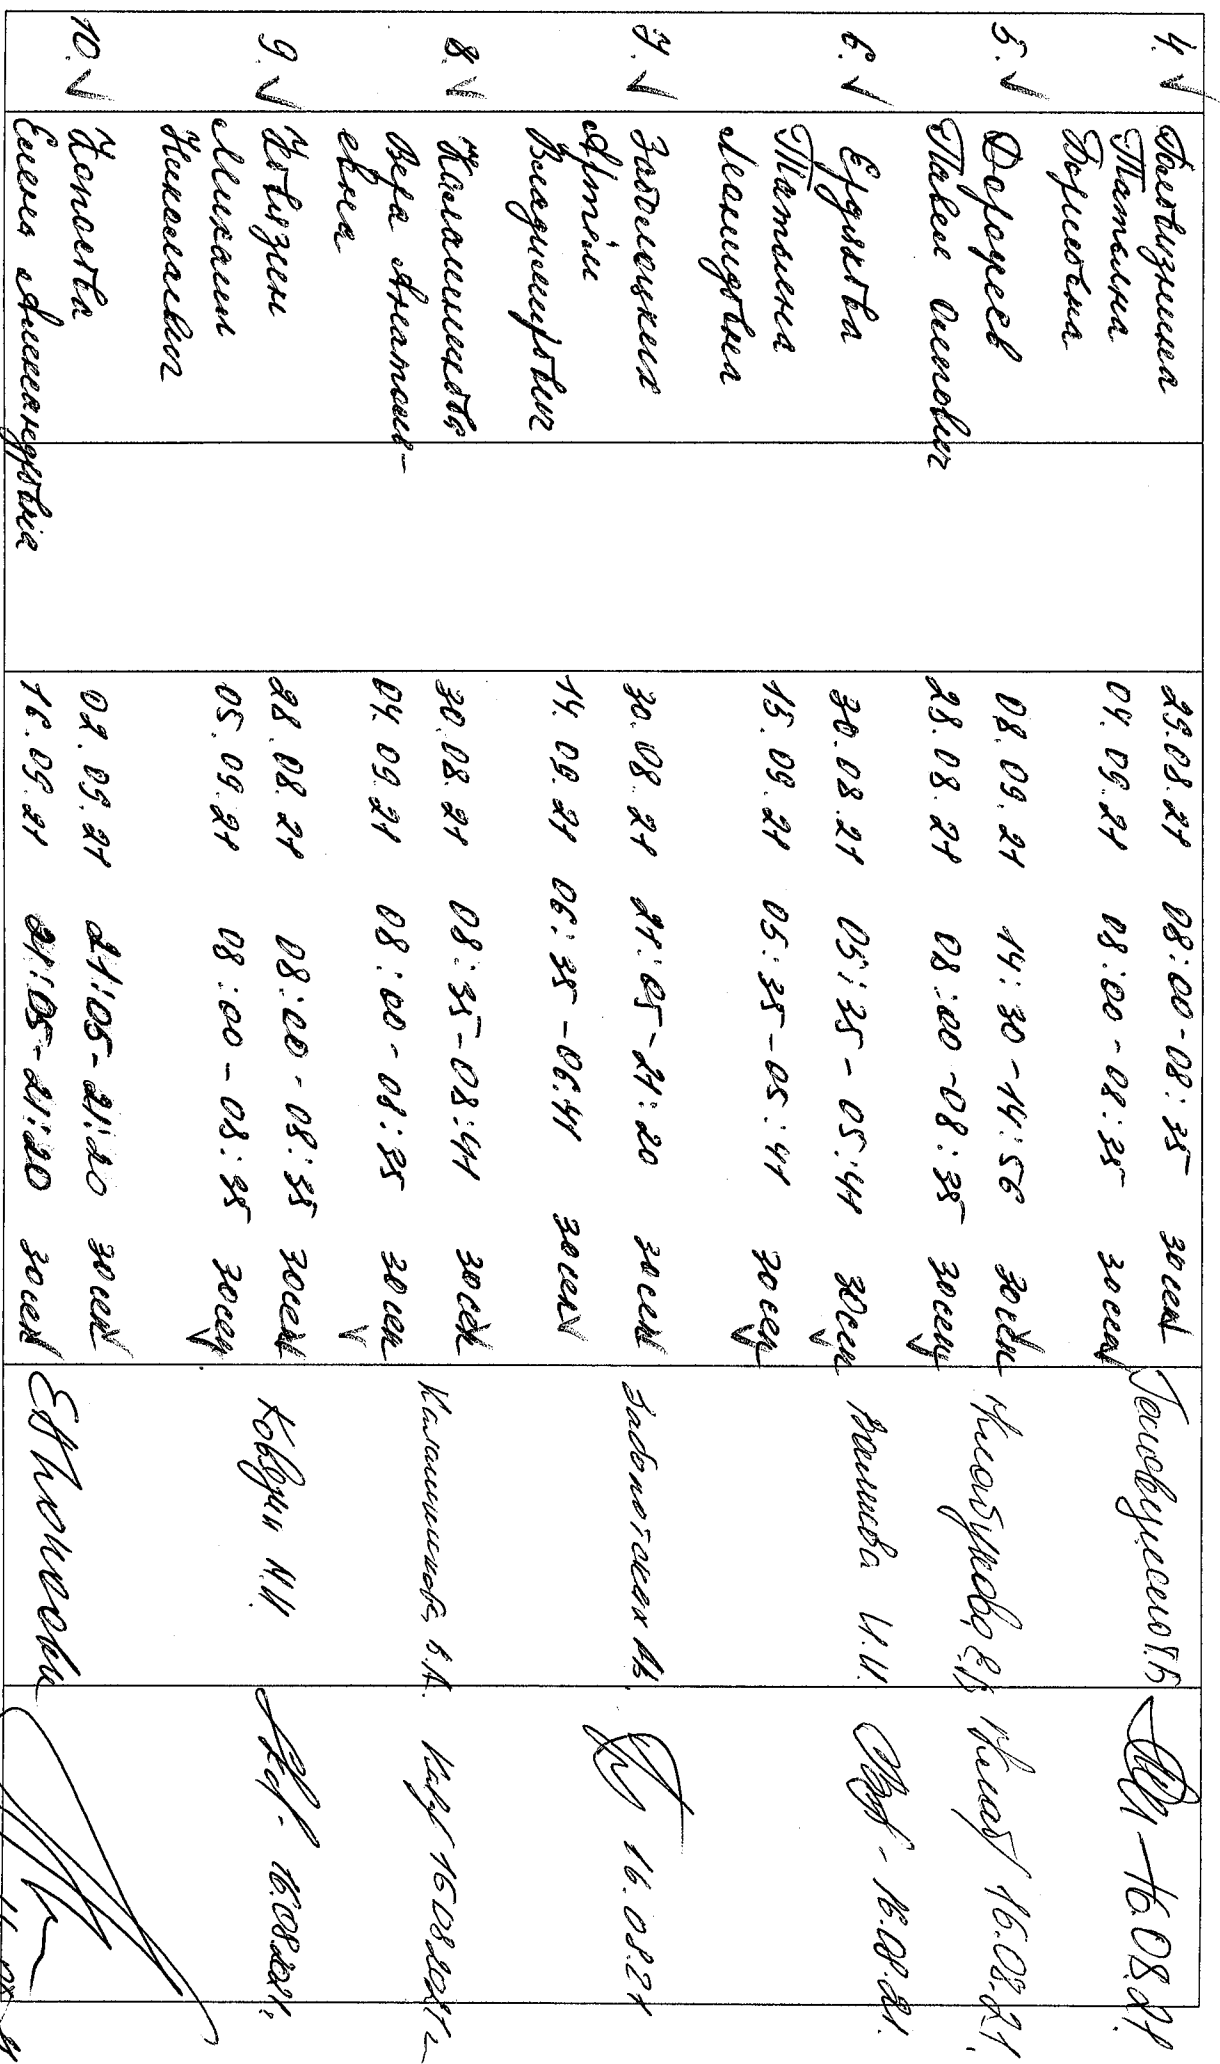 4. Головизнина
Татьяна
Борисовна
29.08.21 08:00-08:35 30сек
04.09.21 08:00-08:35 30сек
16.08.21.
5. Дорофеев
Павел Олегович
08.09.21 14:30-14:56 30сек
28.08.21 08:00-08:35 30сек
16.08.21.
6. Ердякова
Татьяна
Леонидовна
30.08.21 05:35-05:41 30сек
15.09.21 05:35-05:41 30сек
И.И.
16.08.21.
7. Заболоцких
Артём
Владимирович
30.08.21 21:05-21:20 30сек
14.09.21 06:35-06:41 30сек
Заболоцких АВ.
16.08.21
8. Калашникова
Вера Анатоль-
евна
30.08.21 08:35-08:41 30сек
04.09.21 08:00-08:35 30сек
Калашникова В.А.
16.08.2021г
9. Ковязин
Михаил
Николаевич
28.08.21 08:00-08:35 30сек
05.09.21 08:00-08:35 30сек
Ковязин М.Н.
16.08.2021.
10. Копосова
Елена Александровна
02.09.21 21:05-21:20 30сек
16.09.21 21:05-21:20 30сек